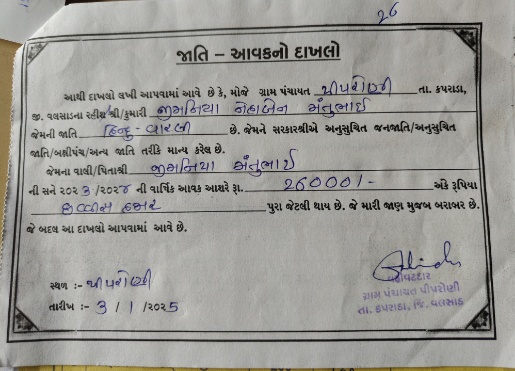 26
જાતિ – આવકનો દાખલો
આથી દાખલો લખી આપવામાં આવે છે કે, મોજે ગ્રામ પંચાયત પીપરોણી તા. કપરાડા,
જી. વલસાડના રહીશ શ્રી/કુમારી જીમનિયા નેહાબેન મંતુભાઈ
જેમની જાતિ હિન્દુ - વારલી છે. જેમને સરકારશ્રીએ અનુસુચિત જનજાતિ/અનુસુચિત
જાતિ/બક્ષીપંચ/અન્ય જાતિ તરીકે માન્ય કરેલ છે.
જેમના વાલી/પિતાશ્રી જીમનિયા મંતુભાઈ
ની સને ૨૦૨૩/૨૦૨૪ ની વાર્ષિક આવક આશરે રૂા. 26000/- અંકે રૂપિયા
છવ્વીસ હજાર પુરા જેટલી થાય છે. જે મારી જાણ મુજબ બરાબર છે.
જે બદલ આ દાખલો આપવામાં આવે છે.
સ્થળ :- પીપરોણી
તારીખ :- 3 / 1 /૨૦૨5
વહીવટદાર
ગ્રામ પંચાયત પીપરોણી
તા. કપરાડા, જિ. વલસાડ